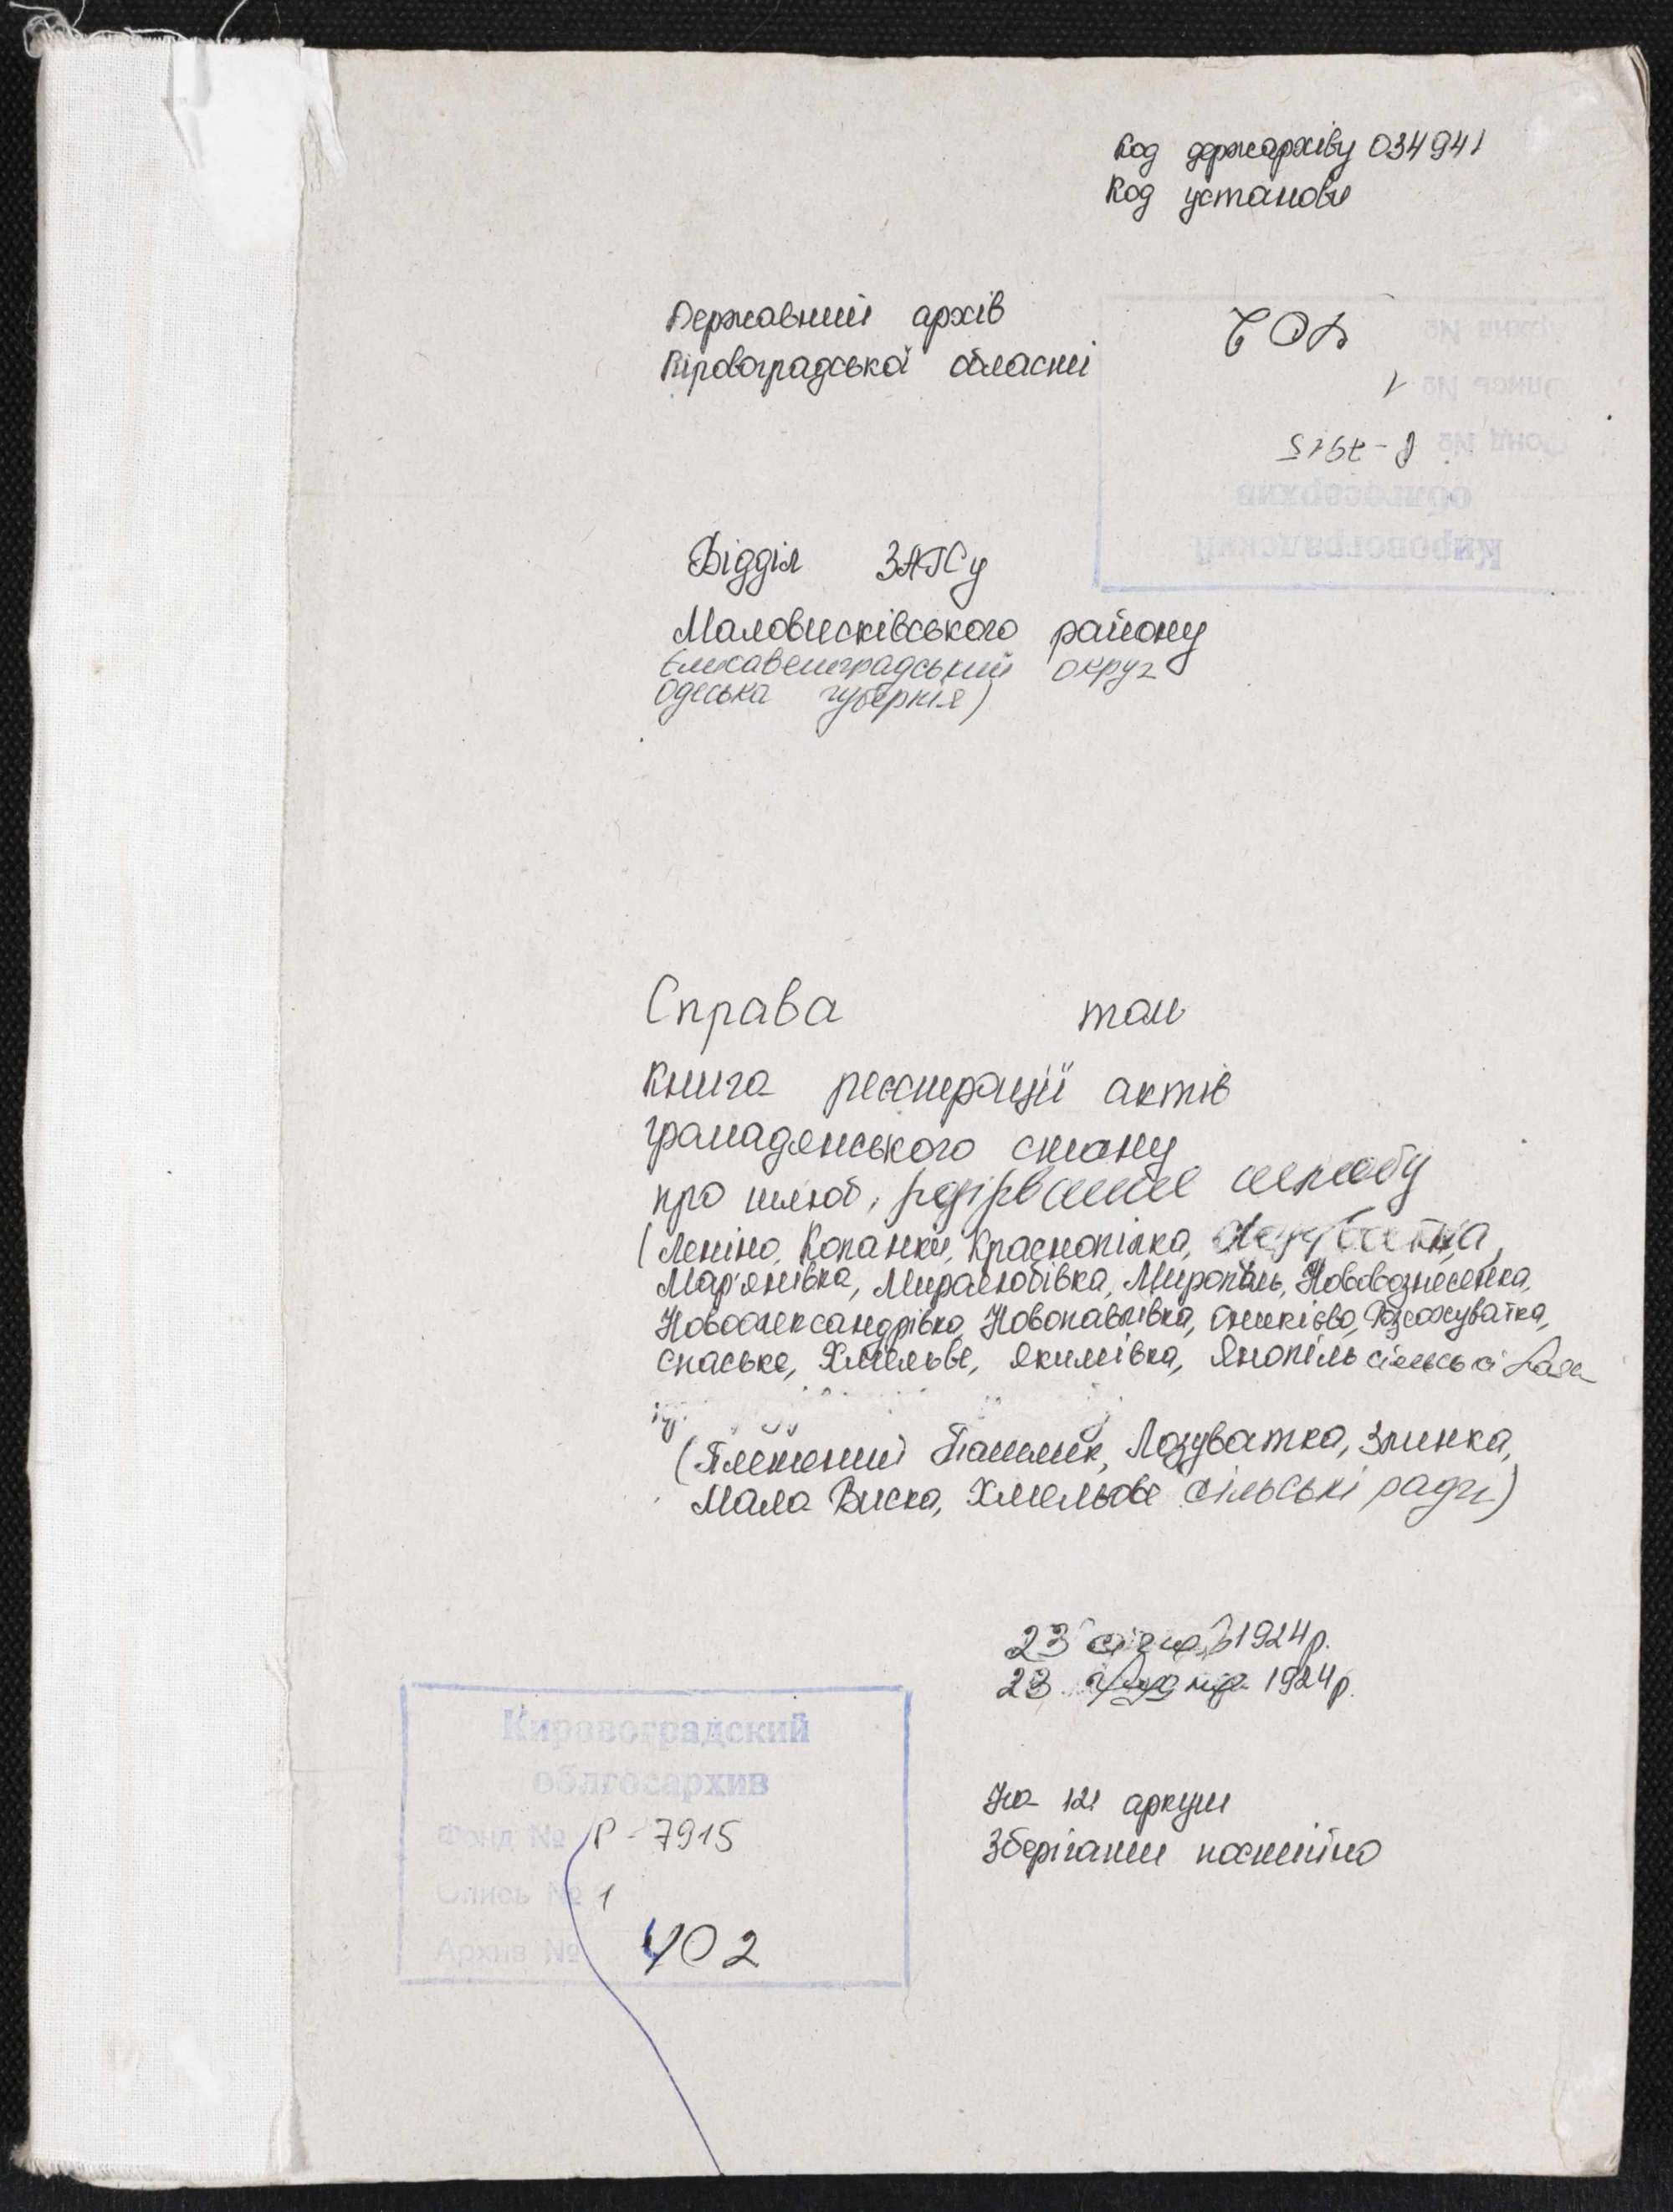 Код держархіву 034941
Код установи
Державний архів
Кіровоградської області
402
1
Р-7915
Фонд №
Опись №
Архив №
Кировоградский
облгосархив
Відділ ЗАГСу
Маловисківського району
Єлисаветградський округ
Одеська губернія)
Справа том
Книга реєстрації актів
громадянського стану
про шлюб, розірвання шлюбу
(Леніно, Копанки, Краснопілка,
Мар'янівка, Миролюбівка, Миропіль, Нововознесенка,
Новоолександрівка, Новопавлівка, Оникієво, Розсохуватка,
Спаське, Хмельве, Якимівка, Янопіль сільські Ради
(Плетений Ташлик, Лозуватка, Злинка,
Мала Виска, Хмельове сільські ради)
23 січня 1924р.
23 грудня 1924р.
На 121 аркуші
Зберігати постійно
Кировоградский
облгосархив
Фонд № Р-7915
Опись № 1
Архив № 402